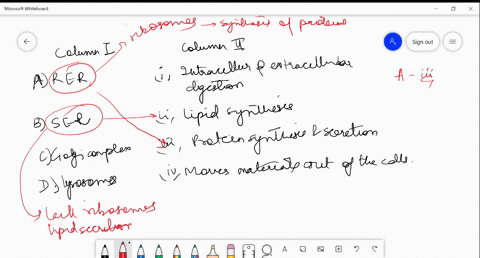 Microsoft Whiteboard
Sign out
ribosomes → synthesis of proteins
Column I
Column II
A) RER
i, Intracellular & extracellular digestion
A - iii
B) SER
ii, Lipid synthesis
iii, Protein synthesis & secretion
C) Golgi complex
iv, Moves materials out of the cells.
D) lysosomes
Lack ribosomes
lipid secretion